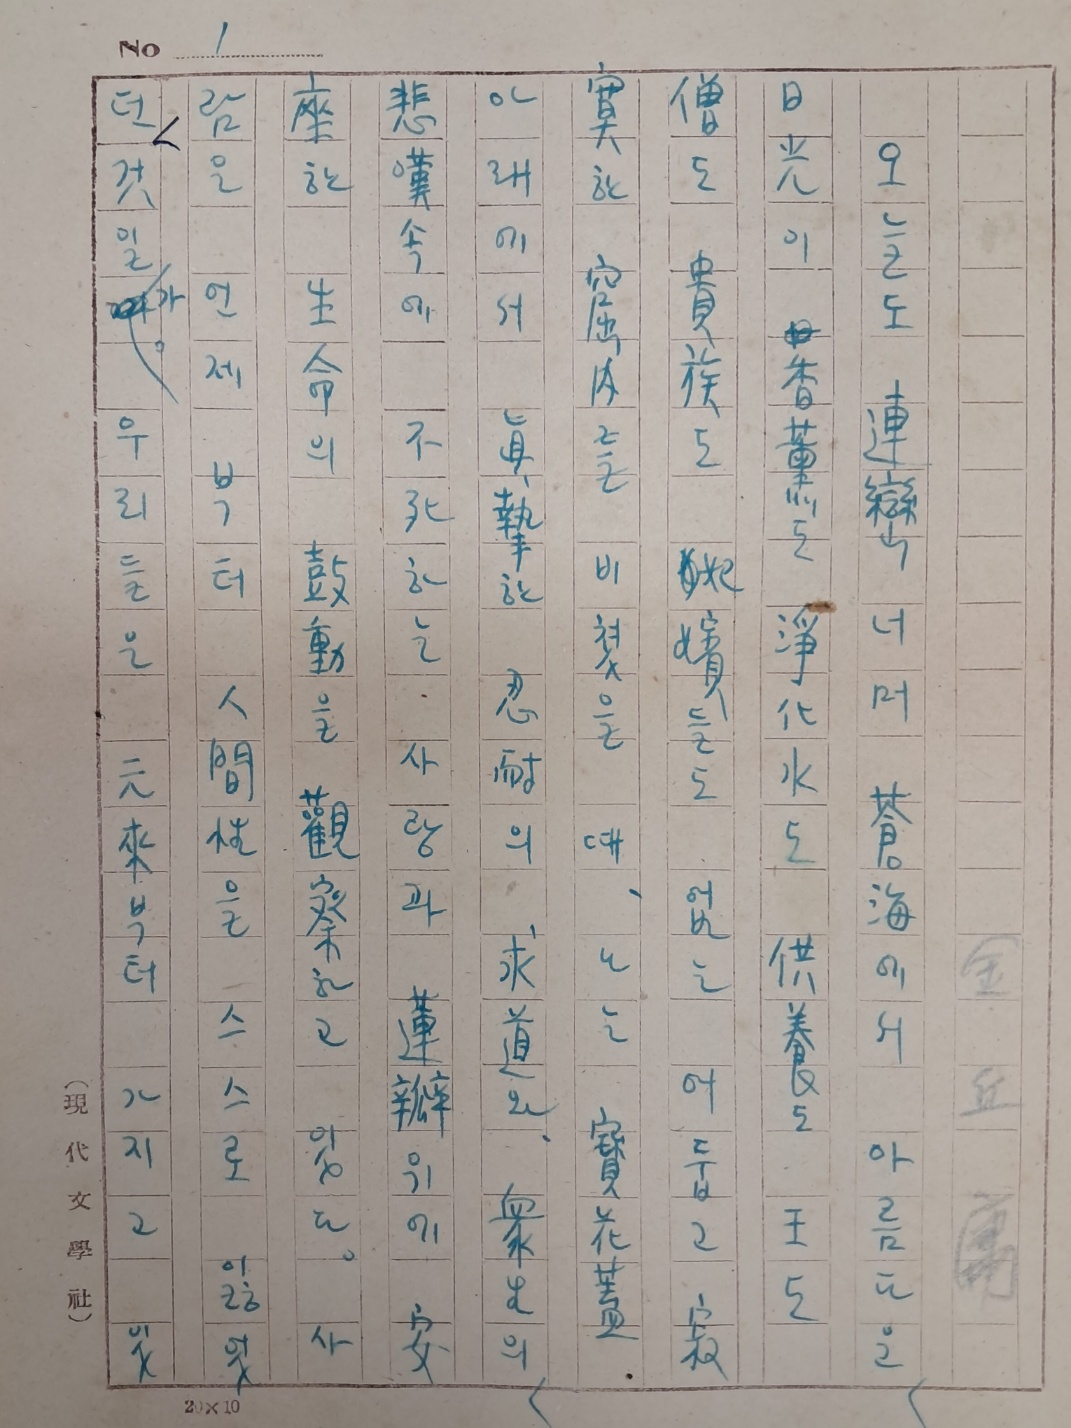 No 1
金丘庸
오늘도 連巒 너머 蒼海에서 아름다운
日光이 香薰도 淨化水도 供養도 王도
僧도 貴族도 妃嬪들도 없는 어둡고 寂
寞한 窟內를 비쳤을 때、 나는 寶花蓋
아래에서 眞摯한 忍耐의 求道와、 衆生의
悲嘆 속에 不死하는 사랑과 蓮瓣 위에 安
座한 生命의 鼓動을 觀察하고 있다。 사
람은 언제부터 人間性을 스스로 잃었
던 것일가。 우리들은 元來부터 가지고 있
(現代文學社)
20×10